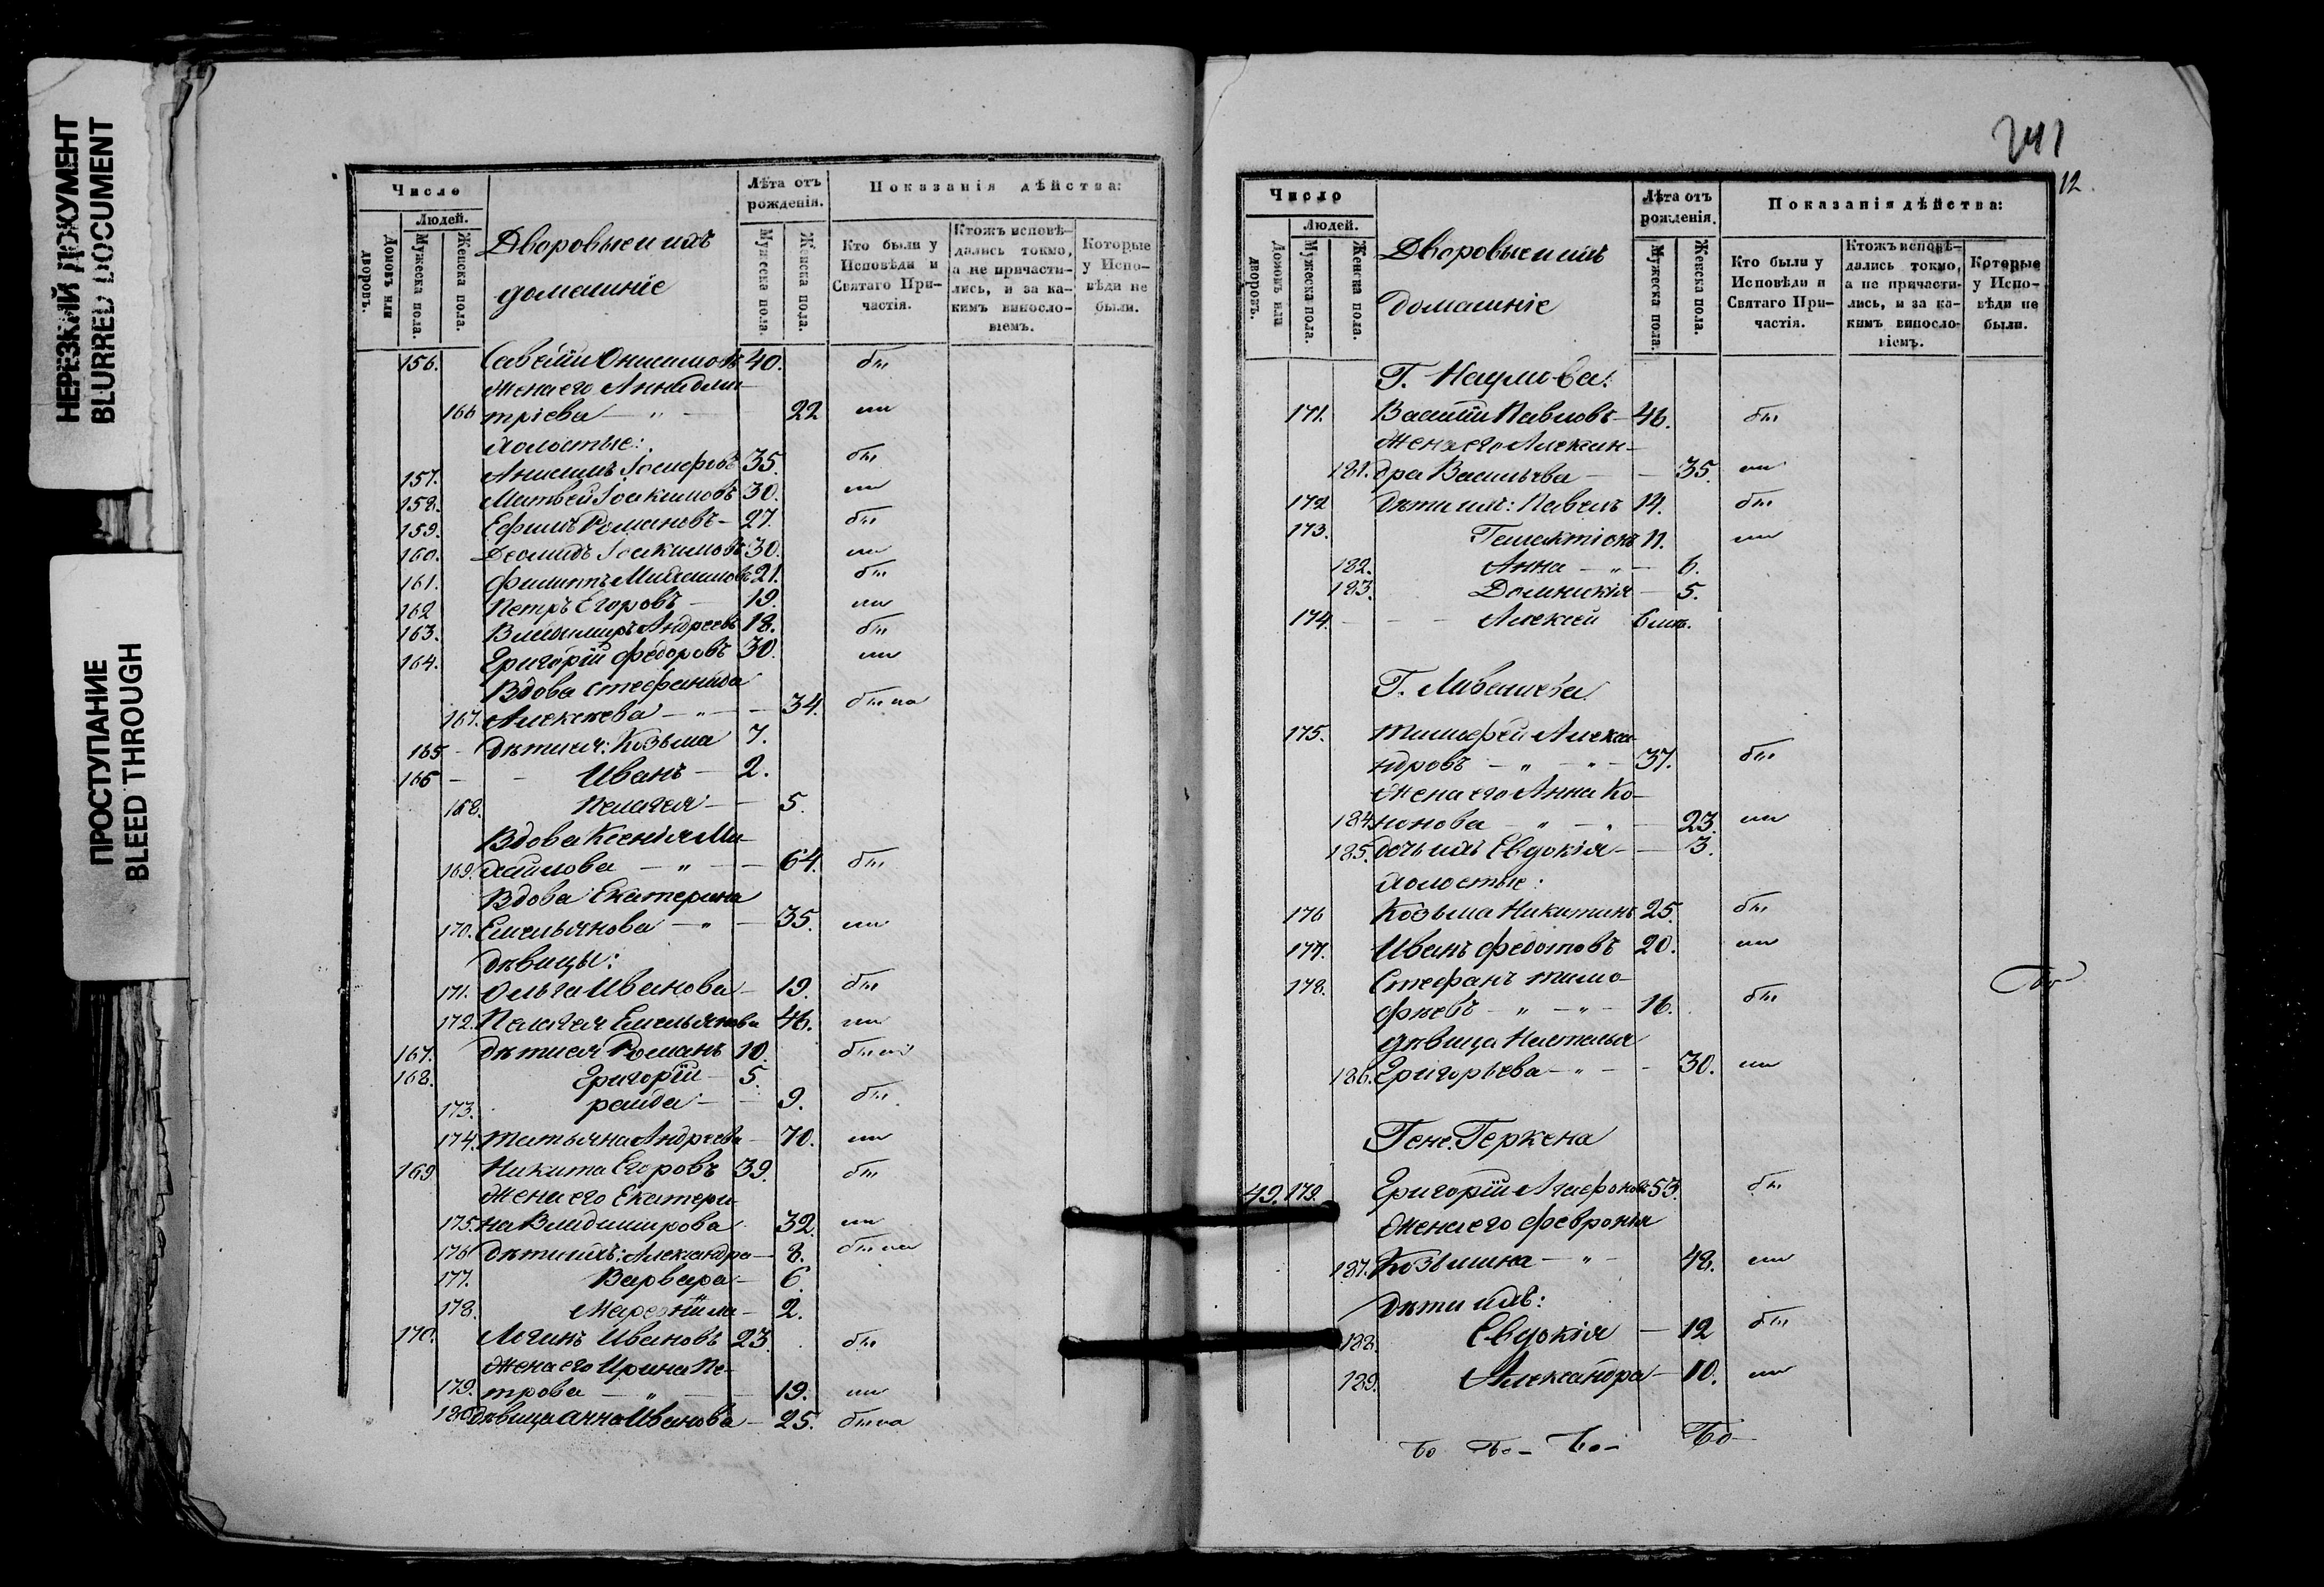 НЕРЕЗКИЙ ДОКУМЕНТ
BLURRED DOCUMENT
ПРОСТУПАНИЕ
BLEED THROUGH
Число
Людей.
Домовъ или дворовъ.
Мужеска пола.
Женска пола.
Дворовые и ихъ
домашнiе
Лѣта отъ рожденiя.
Мужеска пола.
Женска пола.
Показанiя дѣйства:
Кто были у Исповѣди и Святаго При-частiя.
Ктожъ исповѣ-дались токмо, а не причасти-лись, и за ка-кимъ винослo-вiемъ.
Которые у Испо-вѣди не были.
156. Савелiй Онисимовъ 40. бы
жена его Анна Дми-
166 трiева — " — 22 ли
холостые:
157. Анисимъ Iосифовъ 35. бы
158. Матвей Iоакимовъ 30. ли
159. Ефимъ Романовъ — 27. бы
160. Деомидъ Iоакимовъ 30. ли
161. Филиппъ Михаиловъ 21. бы
162 Петръ Егоровъ — 19. ли
163. Владимиръ Андреевъ 18. бы
164. Григорiй Федоровъ 30. ли
Вдова Стефанида
167. Алексѣева — " — 34. была
165 — дѣти ея: Козьма 7.
166 — — Иванъ — 2.
168. Пелагея — — 5.
Вдова Ксенiя Ми-
169. хайлова — " — 64. бы
Вдова Екатерина
170. Емельянова — " — 35. ли
дѣвицы:
171. Ольга Иванова — 19. бы
172. Пелагея Емельянова 46. ли
167. дѣти ея Романъ 10. былъ
168. Григорiй — 5.
173. раида — — 9. бы
174. Татьяна Андреева — 70. ли
169 Никита Егоровъ 39. бы
жена его Екатери-
175. на Владимирова 32. ли
176 дѣти ихъ: Александра — 8. была
177. Варвара — 6.
178. 2.
170. Логинъ Ивановъ 23. бы
жена его Ирина Пе-
179. трова — " — 19. ли
180 дѣвица Анна Иванова — 25. была
241
12.
Число
Людей.
Домовъ или дворовъ.
Мужеска пола.
Женска пола.
Дворовые и ихъ
домашнiе
Лѣта отъ рожденiя.
Мужеска пола.
Женска пола.
Показанiя дѣйства:
Кто были у Исповѣди и Святаго При-частiя.
Ктожъ исповѣ-дались токмо, а не причасти-лись, и за ка-кимъ винослo-вiемъ.
Которые у Испо-вѣди не были.
Г. Наумова:
171. Василiй Павловъ — 46. бы
жена его Алексан-
181. дра Васильева — — 35. ли
172 дѣти ихъ: Павелъ 14. бы
173. Галактiонъ 11. ли
182. Анна — " — 6.
183. Домникiя — 5.
174. — — Алексей 6 мѣс.
Г. Ливашева
175. Тимофей Алекса-
ндровъ — " — " — 37. бы
жена его Анна Ко-
184. нонова — " — " — 23. ли
185. дочь ихъ Евдокiя — — 3.
холостые:
176 Козьма Никитинъ 25. бы
177. Иванъ Федотовъ 20. ли
178. Стефанъ Тимо-
фѣевъ — " — " — 16. бы
дѣвица Наталья
186. Григорьева — " — — 30. ли
Гене. Геркена
49. 179. Григорiй Агафоновъ 53. бы
жена его Феврония
187. Козьмина — " — 48. ли
дѣти ихъ:
188. Евдокiя — 12 бы
189. Александра — 10. ли